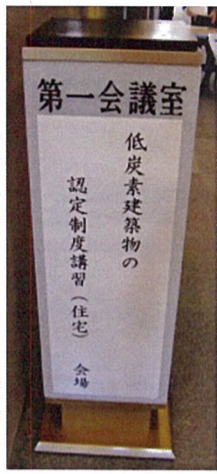 第一会議室
低炭素建築物の
認定制度講習（住宅） 会場